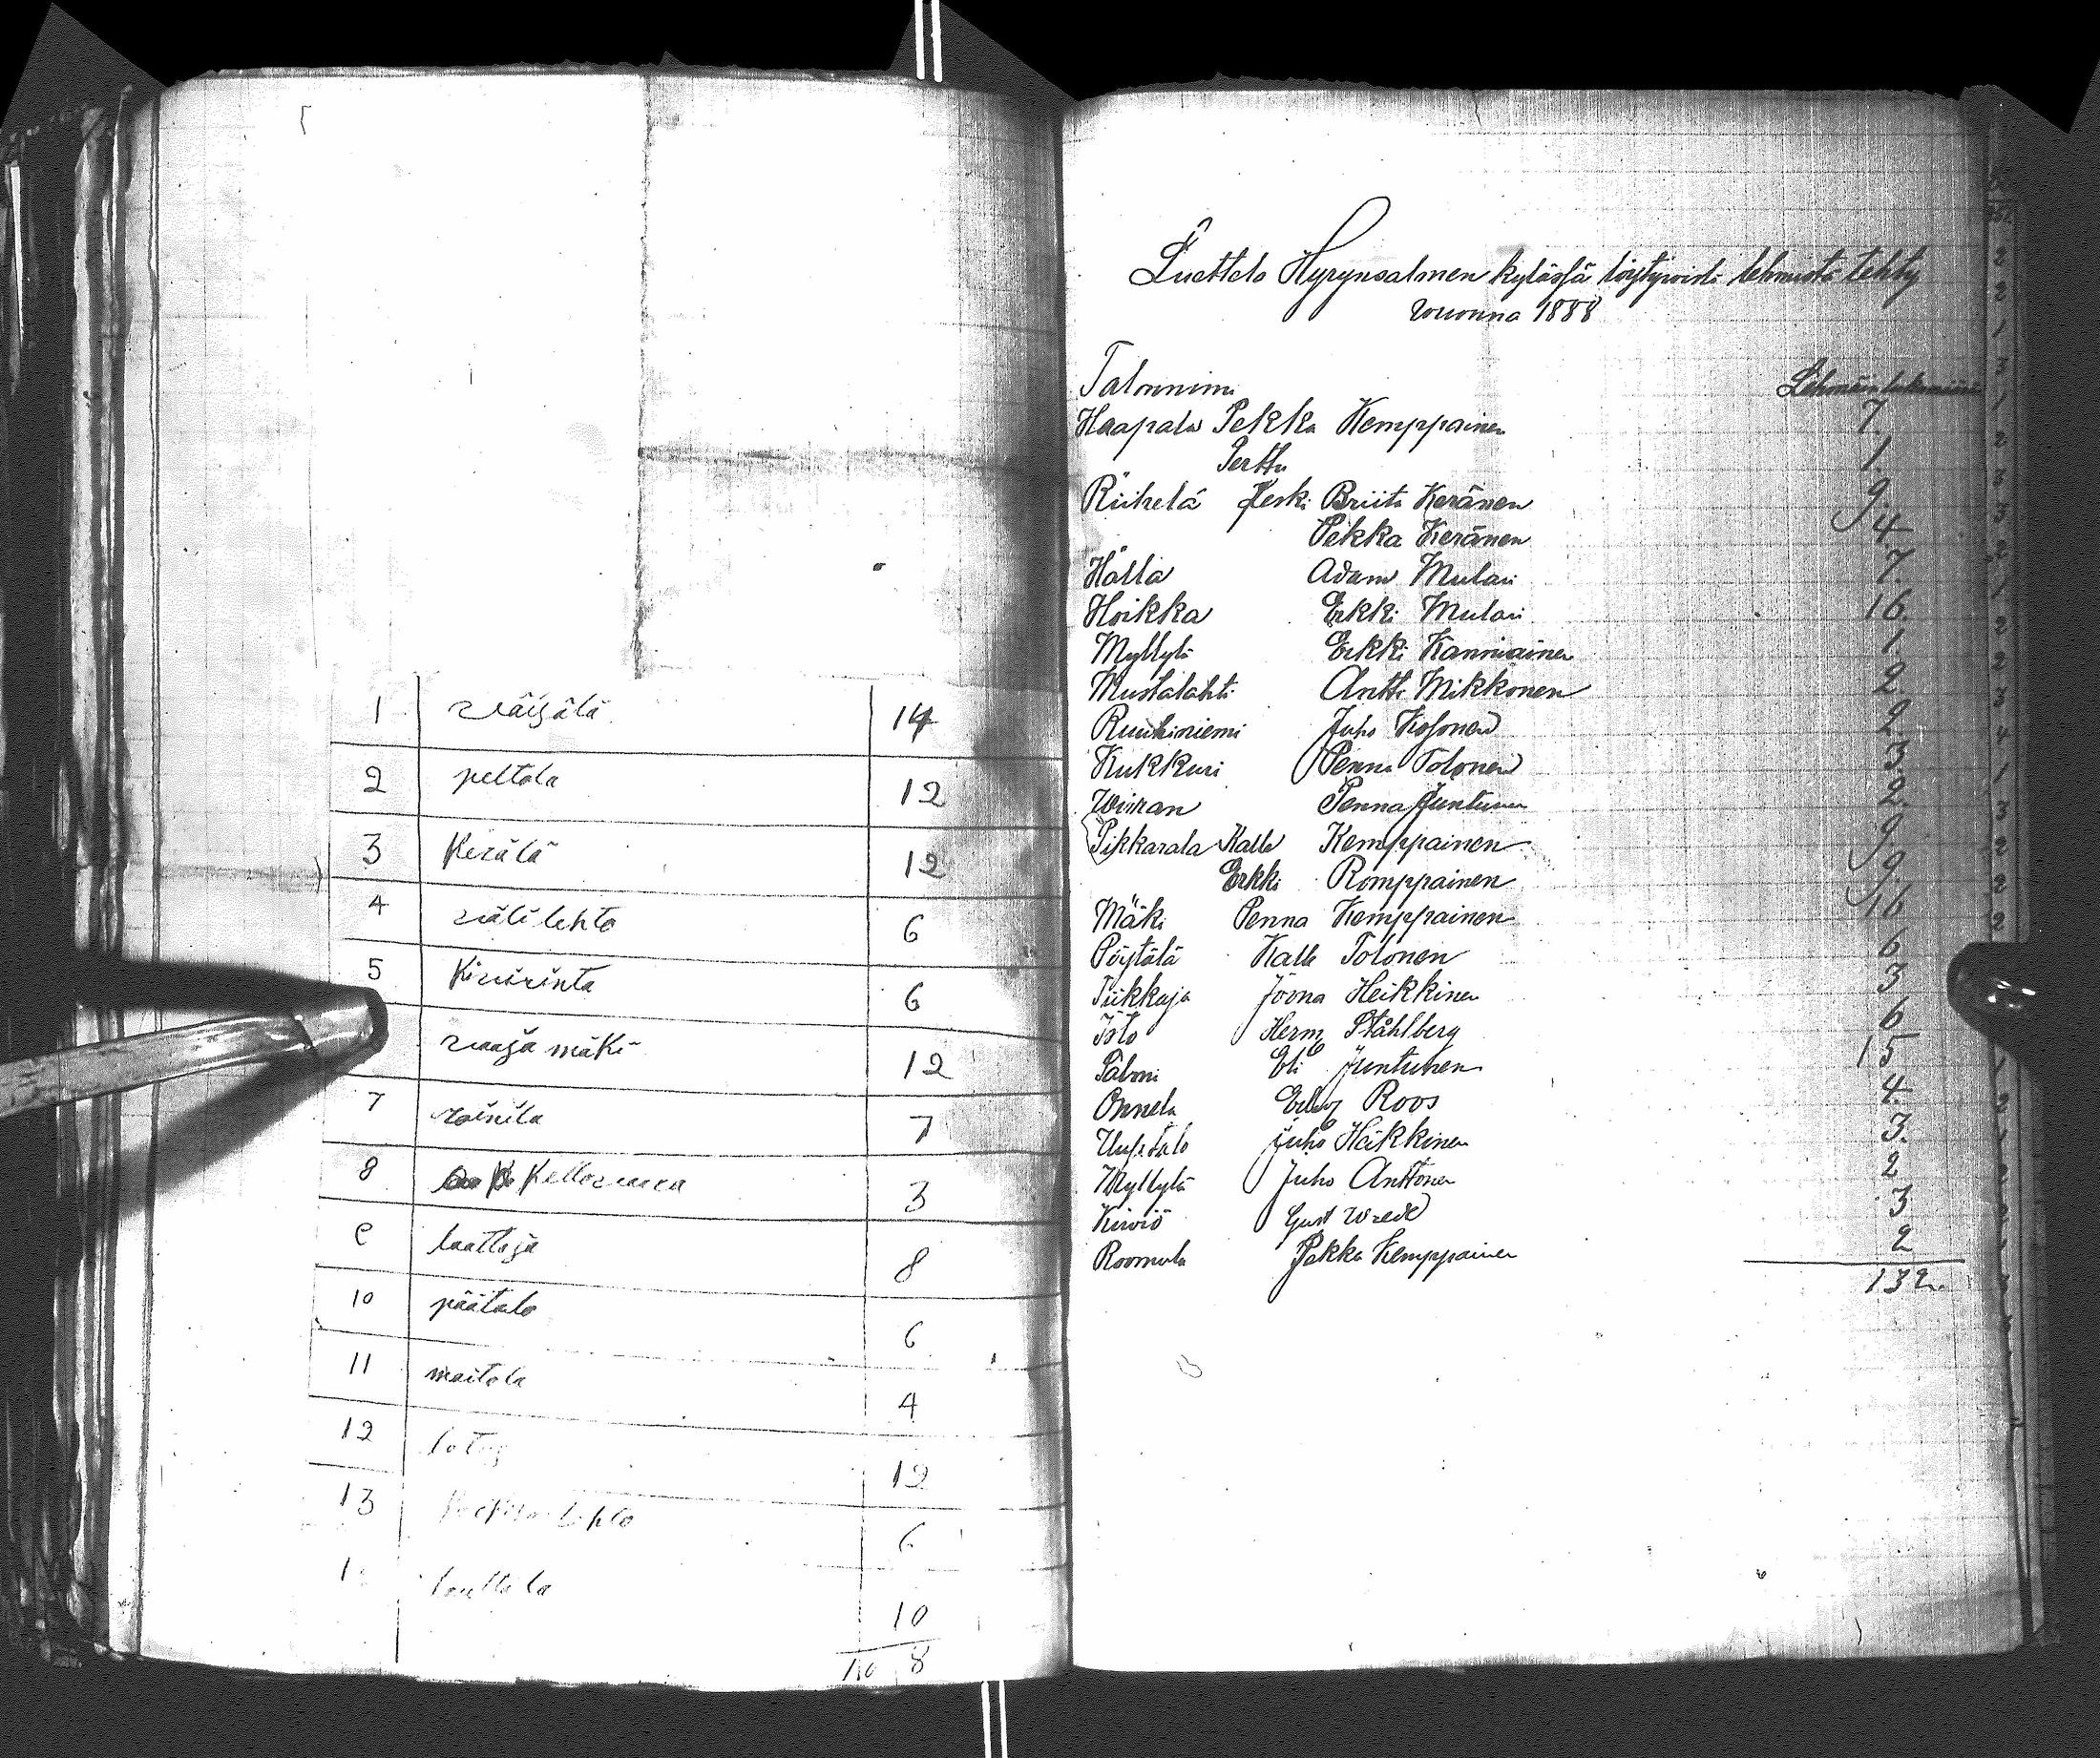 1 väisälä 14
2 peltola 12
3 Kerälä 12
4 välilehto 6
5 Kivirinta 6
vaaja mäki 12
7 vainila 7
8 Kellovaara 3
9 laattaja 8
10 päätalo 6
11 maitola 4
12 12
13 lehto 6
1 lauttala 10
8
Luettelo Hyrynsalmen kylässä löytywistä lehmistä tehty
wuonna 1888
Talonnimi Lehmäin lukumäärä
Haapala Pekka Kemppainen 7.
Perttu 1.
Riihelä Leski Briita Keränen 9.
Pekka Keränen 4
Halla Adam Mulari 7.
Hoikka Erkki Mulari 16.
Myllylä Erkki Kanniainen 1.
Mustalahti Antti Mikkonen 2.
Ruuhiniemi Juho Kosonen 2.
Kukkuri Penna Tolonen 3.
Wiiran Penna Juntunen 2.
Pikkarala Kalle Kemppainen 9.
Erkki Romppainen 9.
Mäki Penna Kemppainen 16
Pöytälä Kalle Tolonen 6
Tiikkaja Joona Heikkinen 3
Iso Herm Ståhlberg 6
Salmi Eli Juntunen 15
Onnela Roos 4.
Uusitalo Juho Heikkinen 3.
Myllylä Juho Anttonen 2
Kiwiö Gust Wrede 3
Roomula Pekka Kemppainen 2
132.